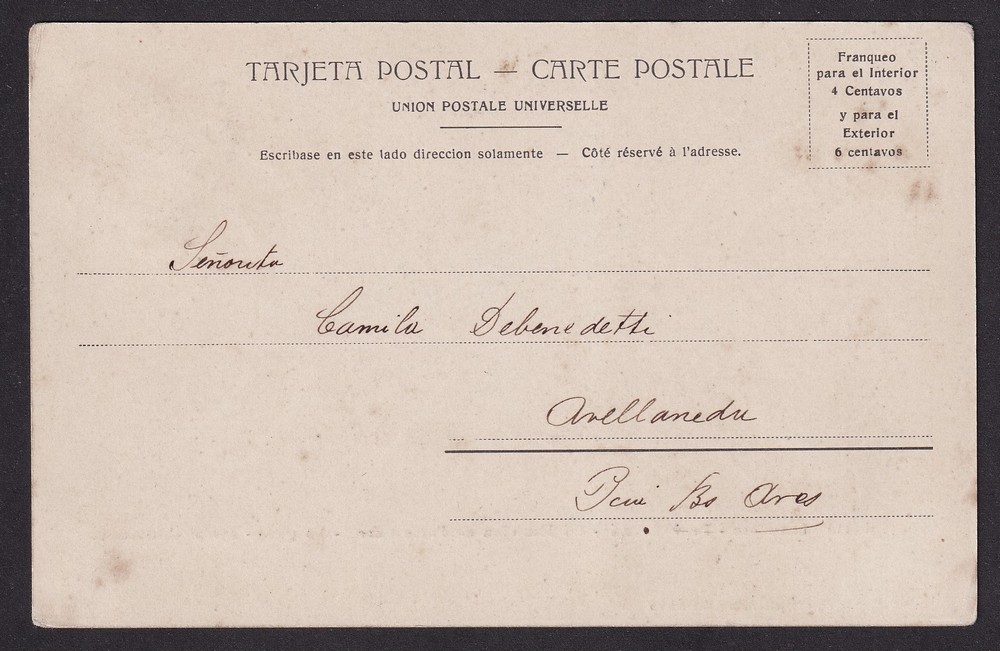 TARJETA POSTAL — CARTE POSTALE
UNION POSTALE UNIVERSELLE
Escribase en este lado direccion solamente — Côté réservé à l'adresse.
Franqueo
para el Interior
4 Centavos
y para el
Exterior
6 centavos
Señorita
Camila Debenedetti
Avellaneda
Bs Ares